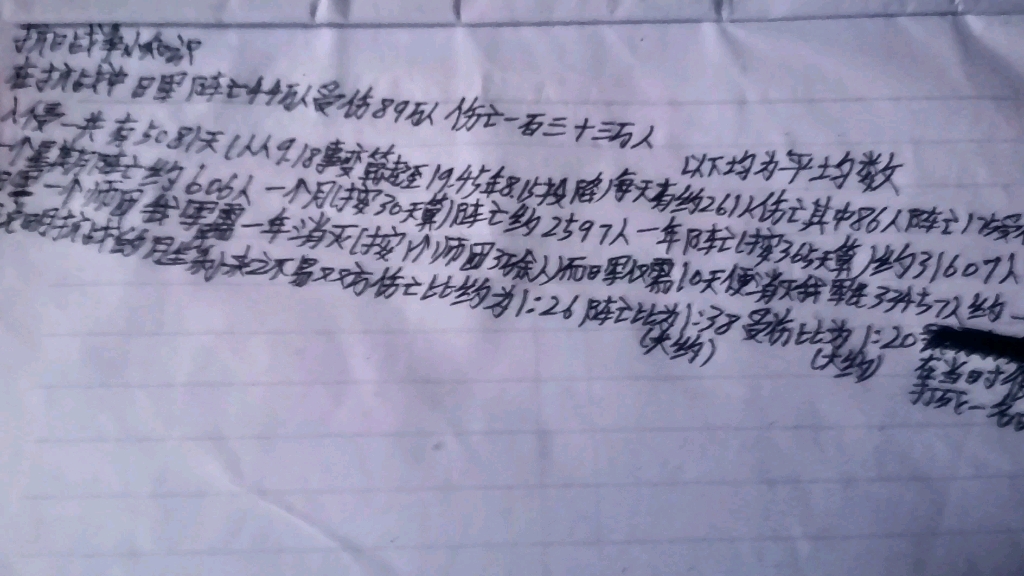 抗日战争小知识
在抗战中日军阵亡44万人受伤89万人伤亡一百三十三万人
以下均为平均数
入侵一共有5087天(从9.18事变算起至1945年815投降)每天有约261人伤亡其中86人阵亡
一个星期阵亡约606人一个月(按30天算)阵亡约2597人一年阵亡(按365天算)约31607人
一个师团我军需一年消灭(按1个师团3万余人)而日军仅需10天便消灭我军33457人约一
抗战的胜利来之不易双方伤亡比约为1:26阵亡比为1:38受伤比为1:20
(大约) (大约)
在当时
打死一名